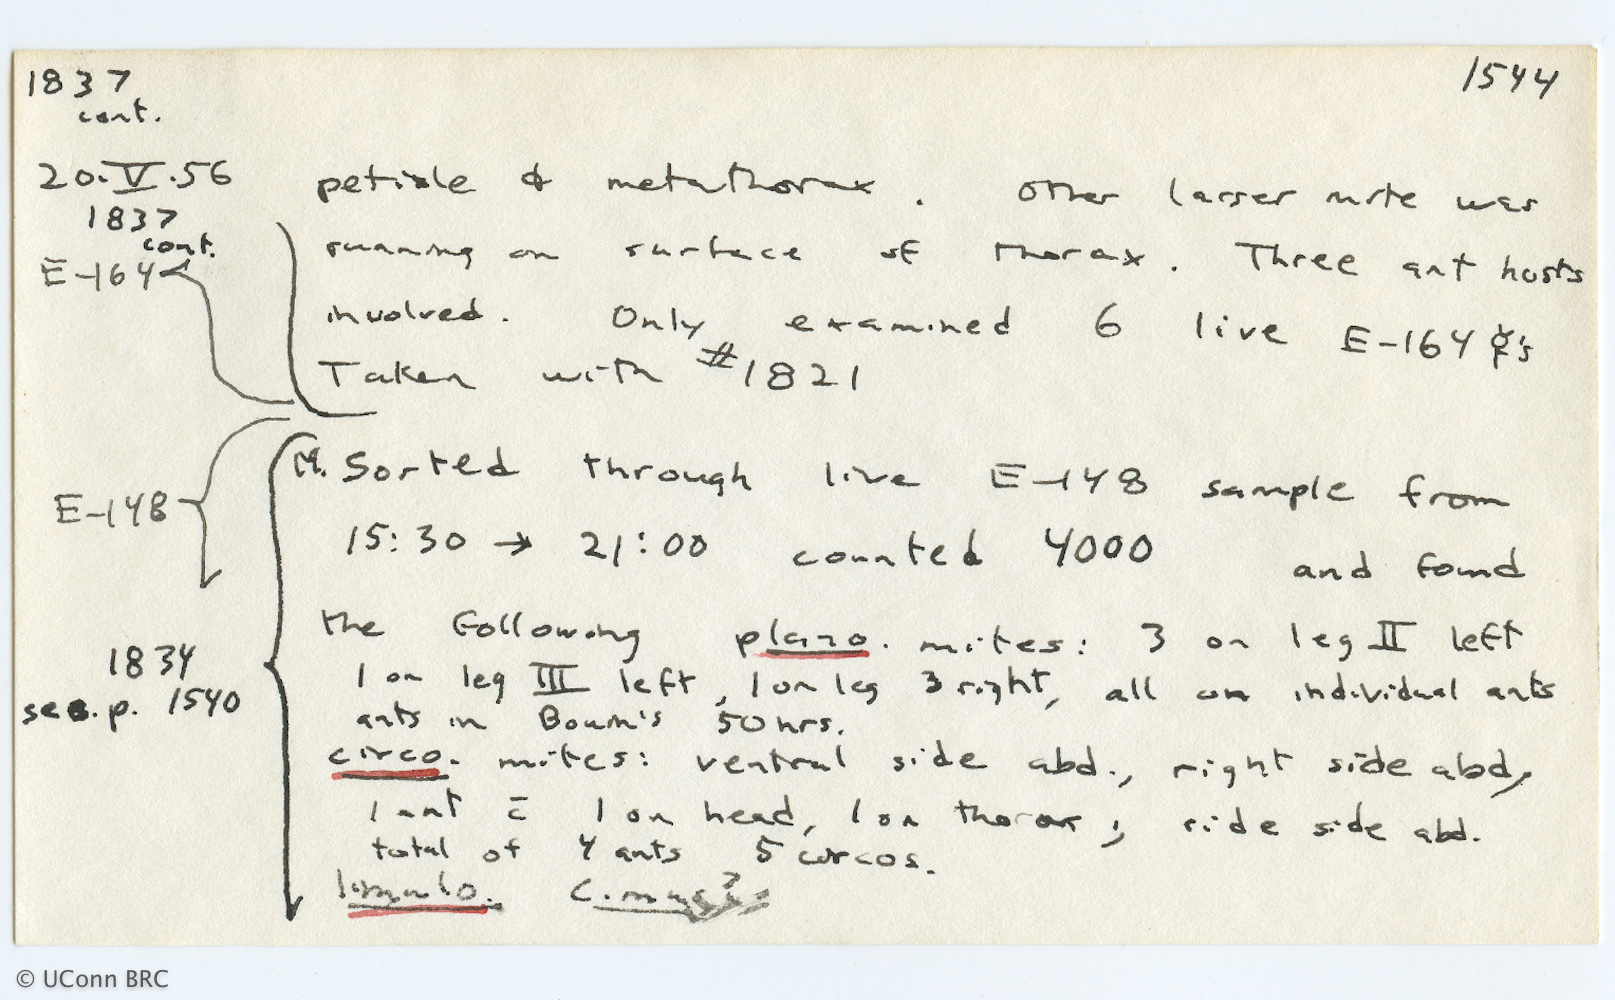 1837 1544
cont.
20.V.56 petiole & metathorax. Other larger mite was
1837
cont. running on surface of thorax. Three ant hosts
E-164
involved. Only examined 6 live E-164 ☿'s
Taken with #1821
M. Sorted through live E-148 sample from
E-148
15:30 → 21:00 counted 4000 and found
the following plano. mites: 3 on leg II left
1834 1 on leg III left, 1 on leg 3 right, all on individual ants
see. p. 1540 ants in Bouin's 50 hrs.
circo. mites: ventral side abd., right side abd,
1 ant c̄ 1 on head, 1 on thorax; side side abd.
total of 4 ants 5 circos.
limulo. C.
© UConn BRC